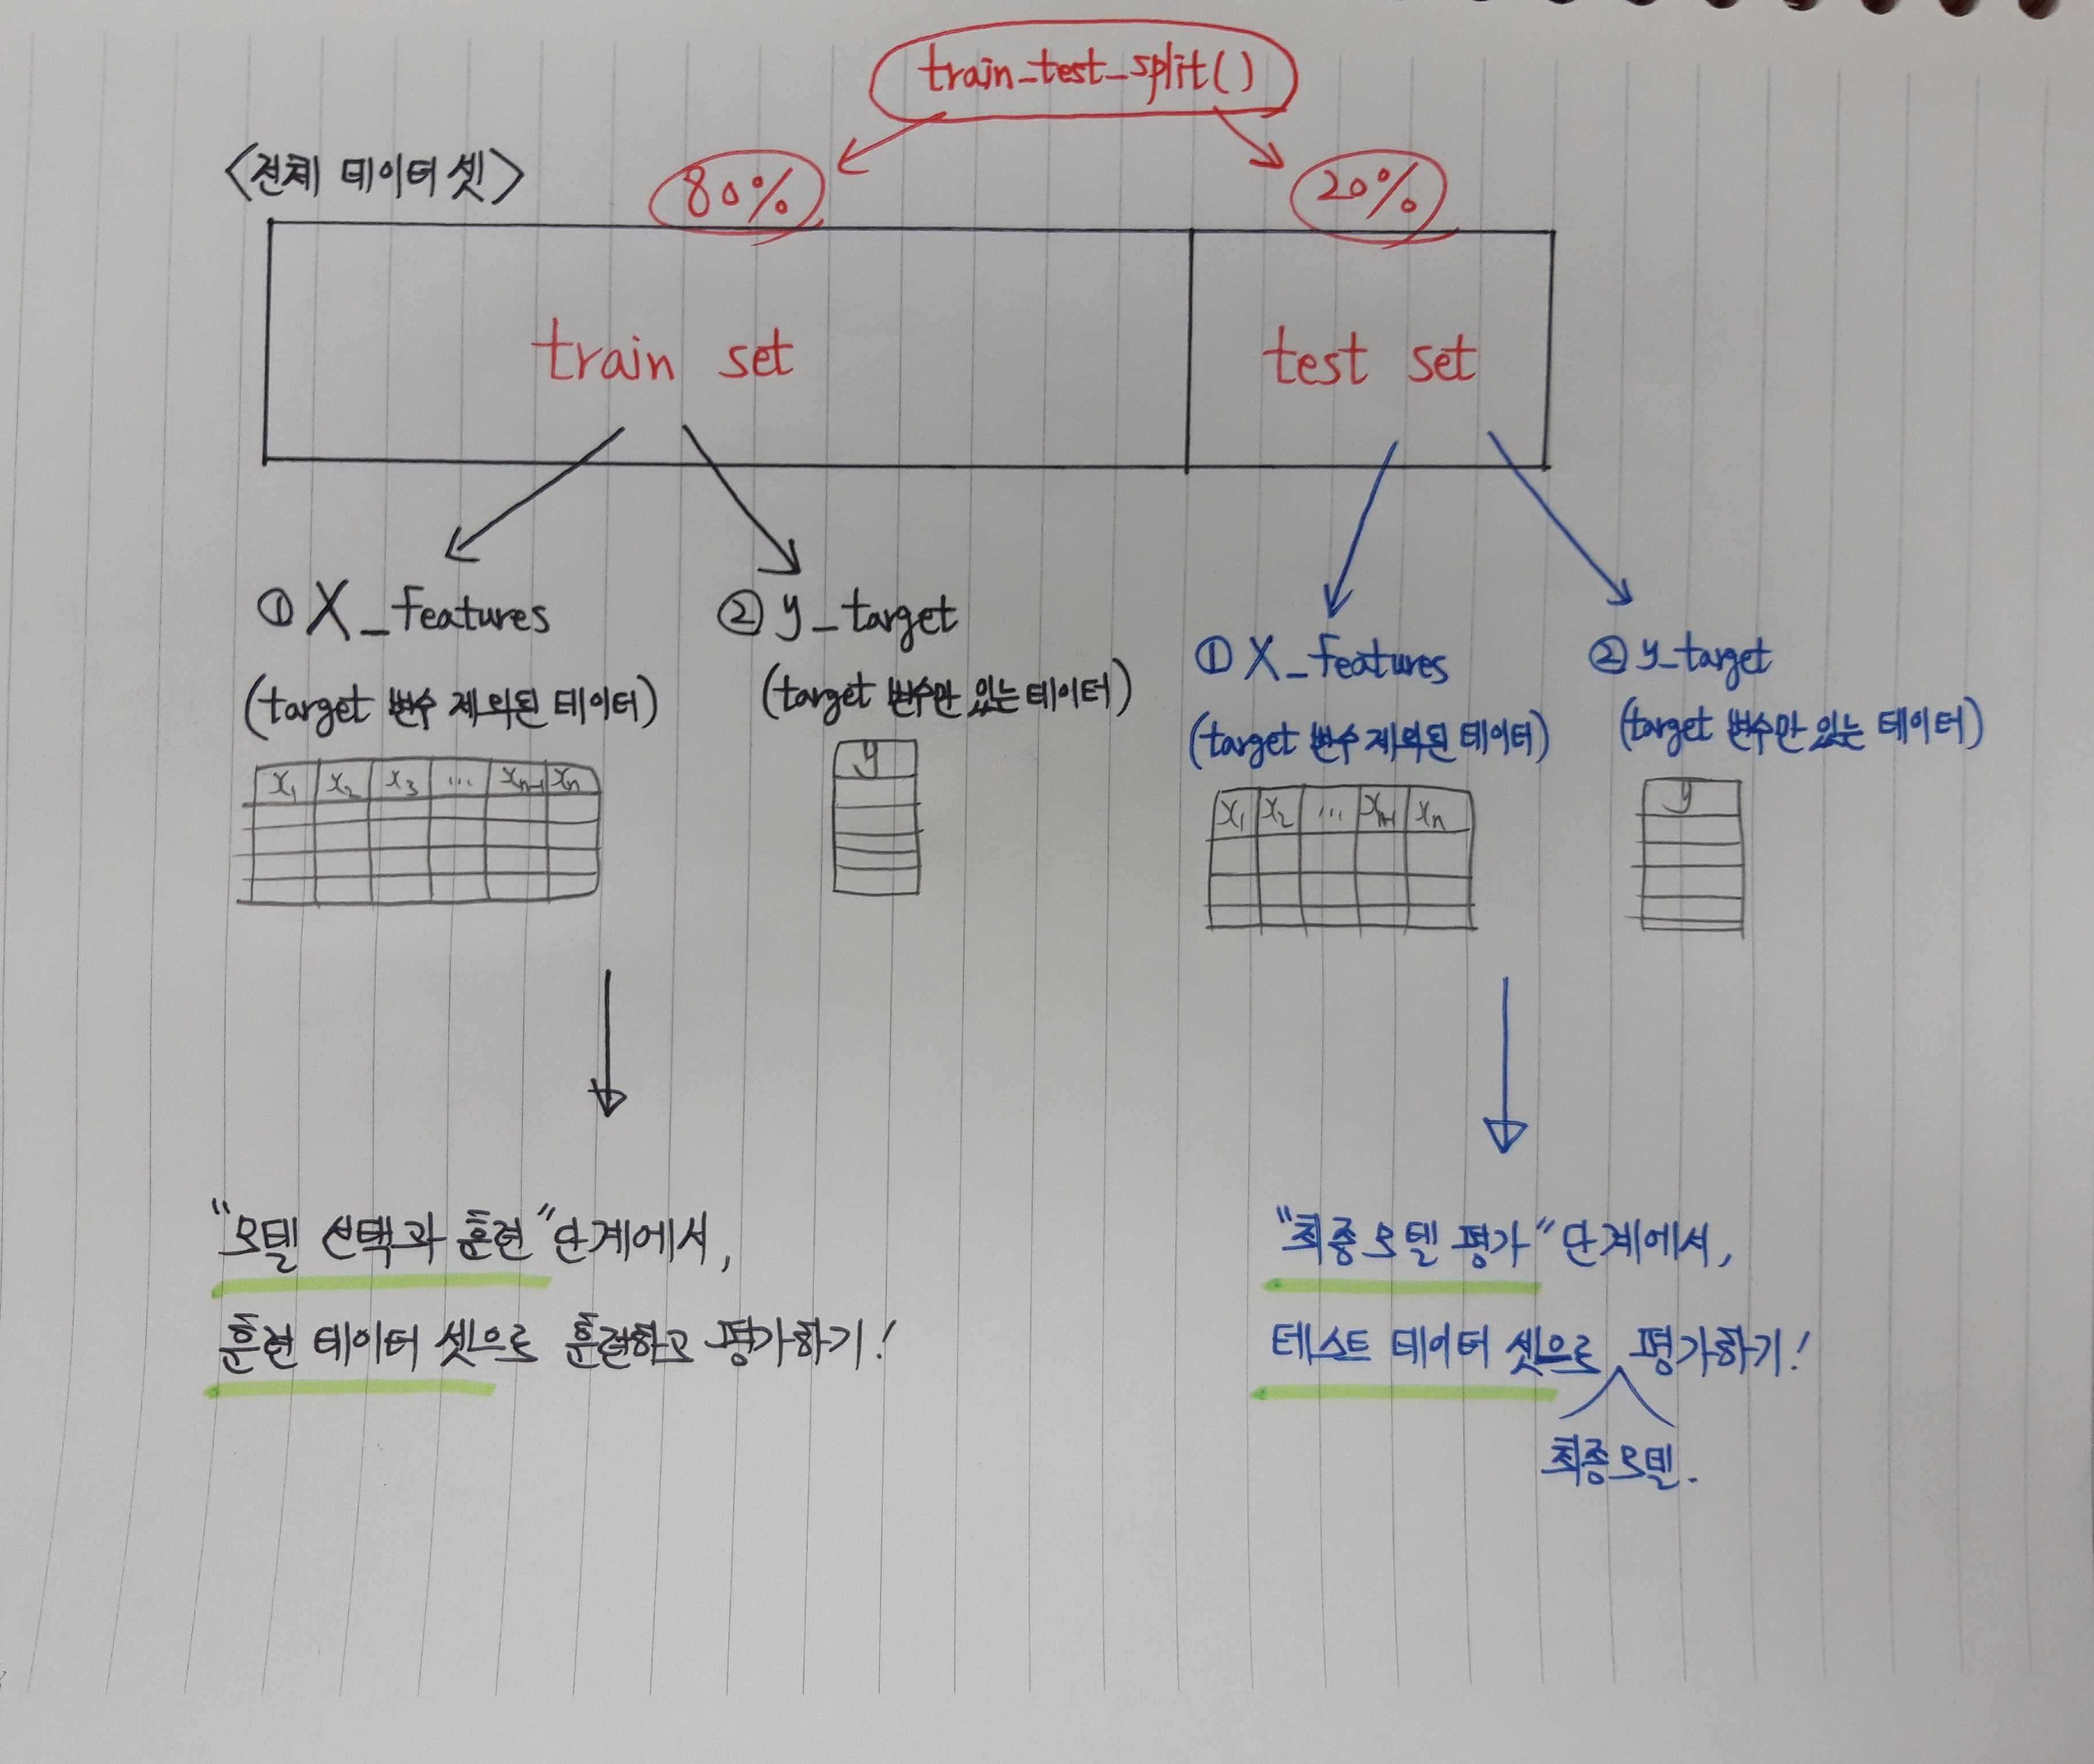 train_test_split()
<전체 데이터 셋>
80%
20%
train set
test set
① X_features
② y_target
(target 변수 제외된 데이터)
(target 변수만 있는 데이터)
x₁ x₂ x₃ ... xₙ₋₁ xₙ
y
① X_features
② y_target
(target 변수 제외된 데이터)
(target 변수만 있는 데이터)
x₁ x₂ ... xₙ₋₁ xₙ
y
"모델 선택과 훈련" 단계에서,
훈련 데이터 셋으로 훈련하고 평가하기!
"최종 모델 평가" 단계에서,
테스트 데이터 셋으로 평가하기!
최종 모델.